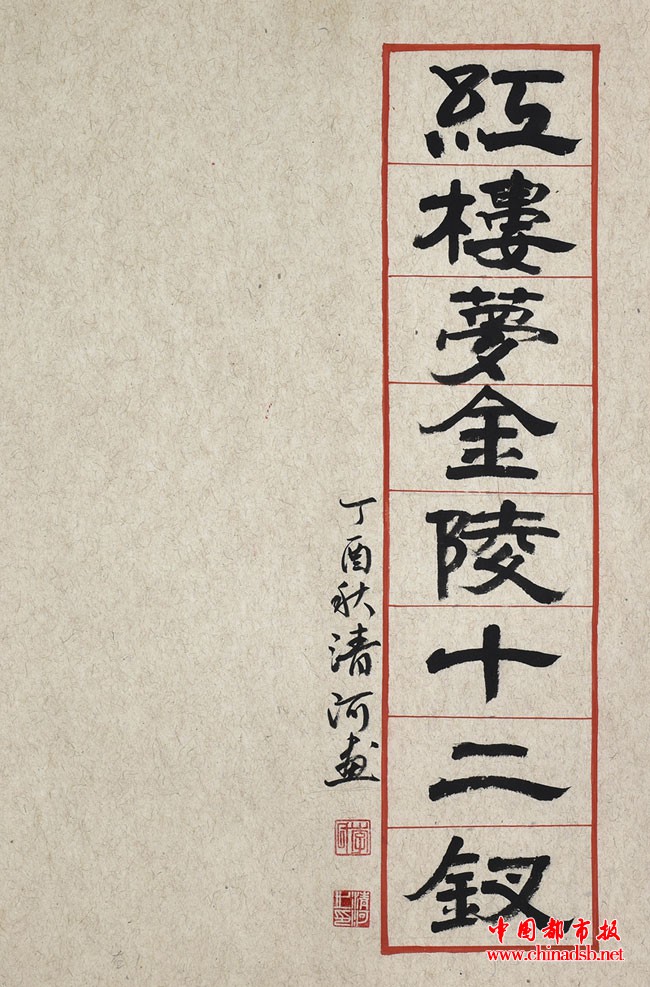 紅樓夢金陵十二釵
丁酉秋清河畫
清河之印
中国都市报
www.chinadsb.net